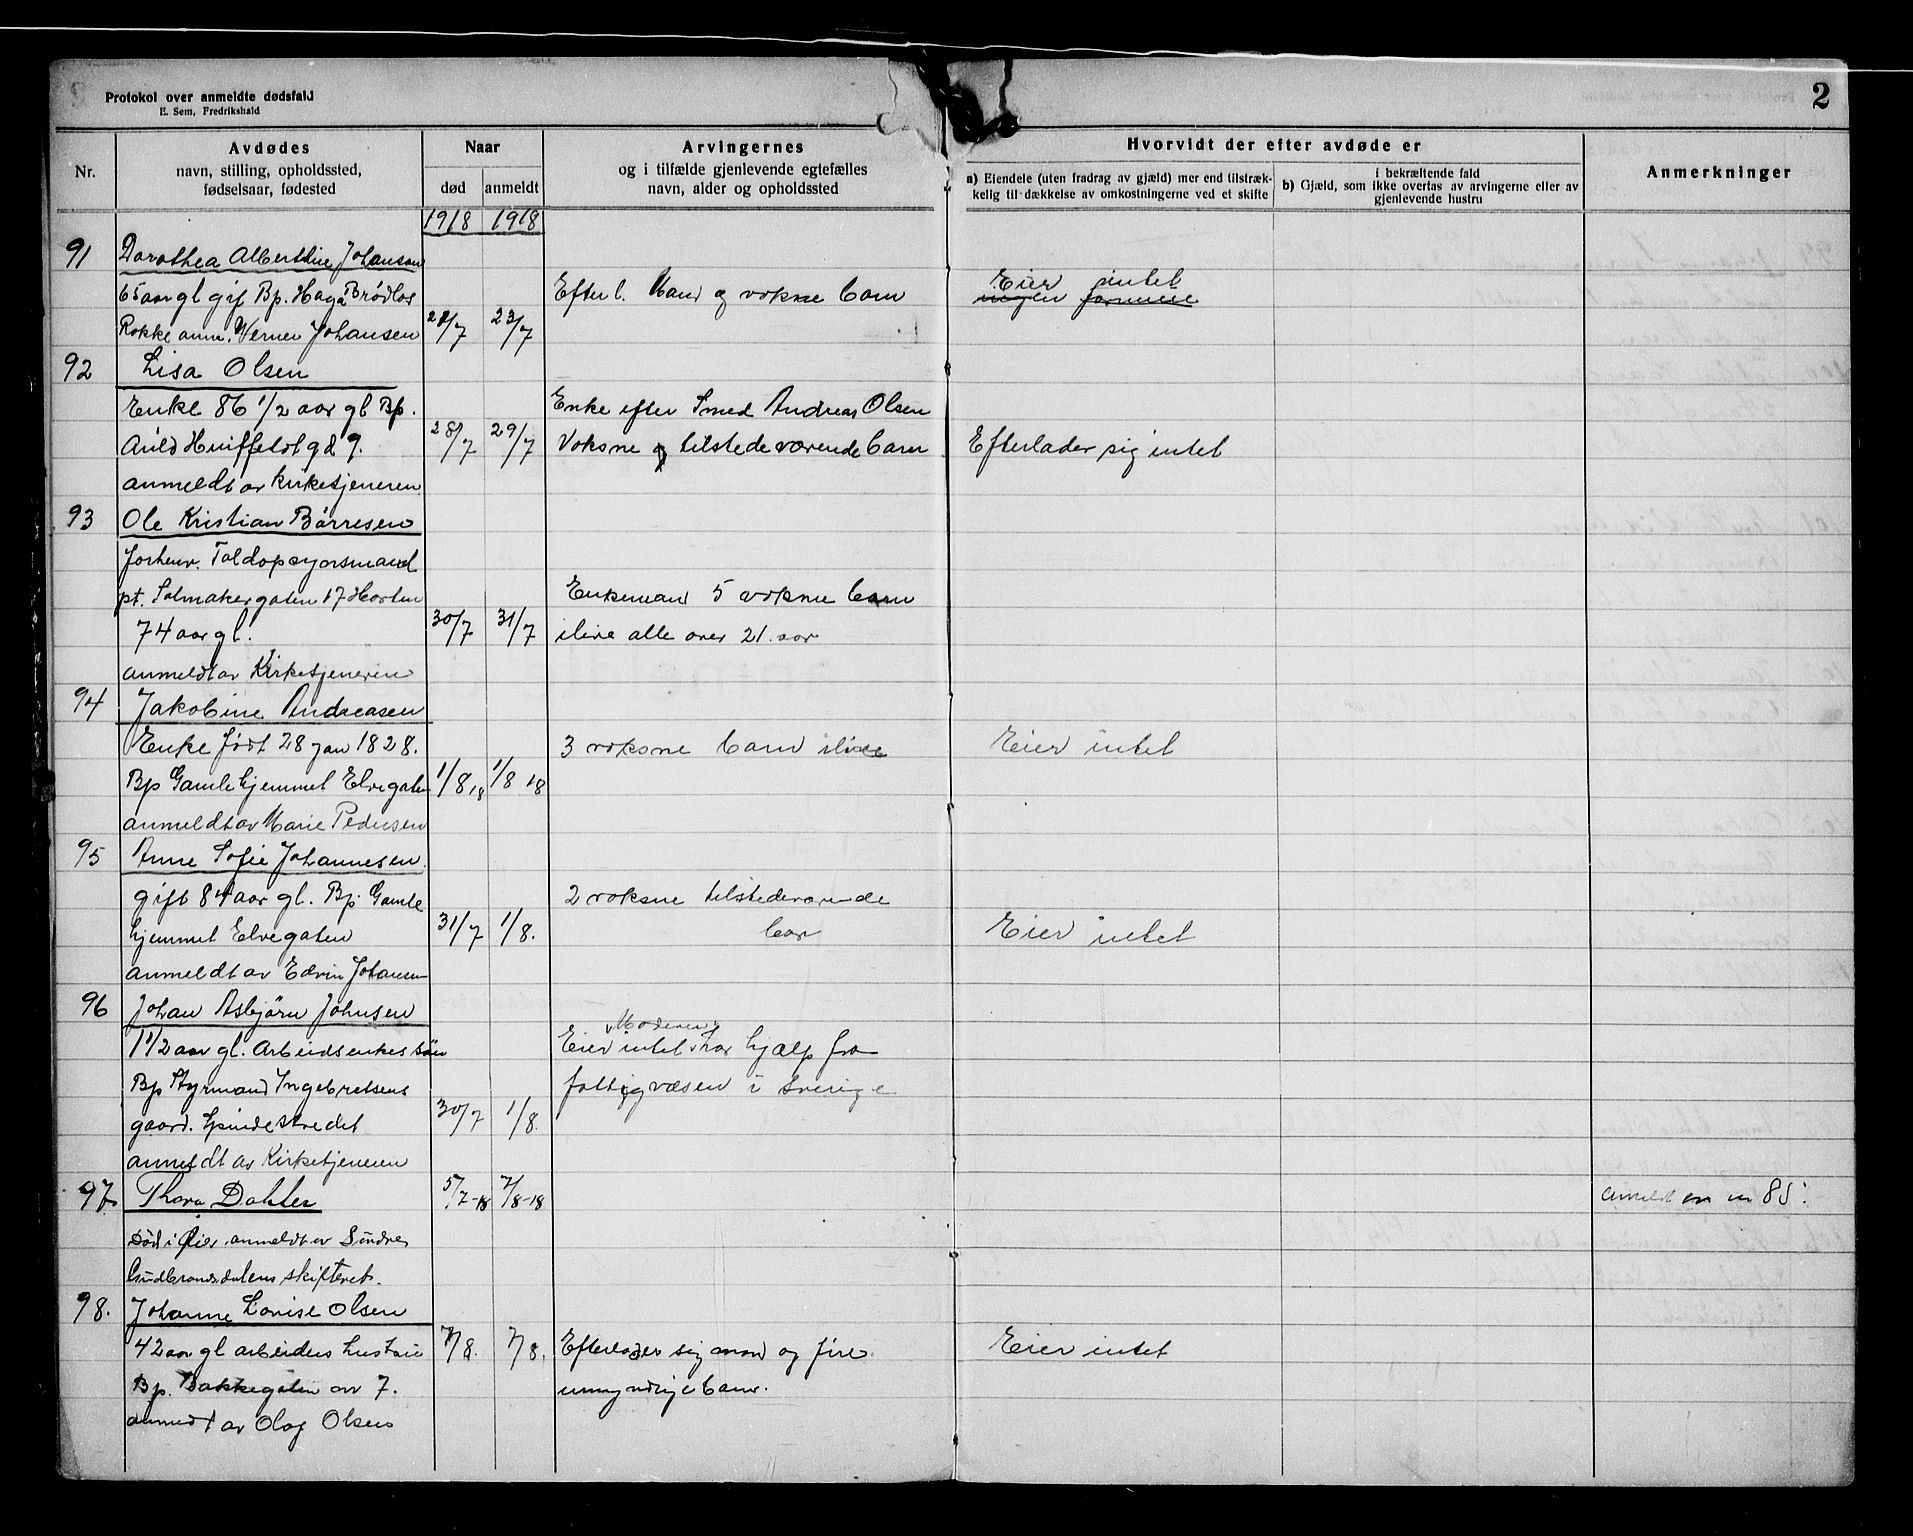 Protokol over anmeldte dødsfald
E. Sem, Fredrikshald
2
Nr.
Avdødes
navn, stilling, opholdssted,
fødselsaar, fødested
Naar
død
anmeldt
Arvingernes
og i tilfælde gjenlevende egtefælles
navn, alder og opholdssted
Hvorvidt der efter avdøde er
a) Eiendele (uten fradrag av gjæld) mer end tilstræk-
kelig til dækkelse av omkostningerne ved et skifte
i bekræftende fald
b) Gjæld, som ikke overtas av arvingerne eller av
gjenlevende hustru
Anmerkninger
1918 1918
91 Dorothea Alberthine Johansen
65 aar gl gif Bp. Haga Brødløs
Efterl. Mand og voksne barn
Eier intet
ingen formue
Rokke anm. Verner Johansen 21/7 23/7
92 Lisa Olsen
Enke 86 1/2 aar gl Bp.
Enke efter Smed Andreas Olsen
Arild Huitfeldt gd 9. 28/7 29/7 Voksne og tilstedeværende barn Efterlader sig intet
anmeldt av kirketjeneren
93 Ole Kristian Børresen
Forhenv. Toldopsynsmand
pt. Salmakergaten 17 Horten
Enkemand 5 voksne barn
74 aar gl. 30/7 31/7 ilive alle over 21. aar
anmeldt av Kirketjeneren
94 Jakobine Andreasen
Enke født 28 jan 1828. 3 voksne barn ilive Eier intet
Bp Gamlehjemmet Elvegaten 1/8 18 1/8 18
anmeldt av Marie Pedersen
95 Anne Sofie Johannesen
gift 84 aar gl. Bp. Gamle 2 voksne tilstedeværende
hjemmet Elvegaten 31/7 1/8. bar Eier intet
anmeldt av Edvin Johansen
96 Johan Asbjørn Johnsen
Moderen
1 1/2 aar gl. Arbeidsenkes søn Eier intet har hjælp fra
Bp Styrmand Ingebretsens fattigvæsen i Sverige
gaard. Spindestredet 30/7 1/8.
anmeldt av Kirketjeneren
97. Thora Dahler 5/7-18 7/8-18 anmeldt nr 85.
Død i Øier anmeldt av Søndre
Gudbrandsdalens skifteret.
98. Johanne Lovise Olsen
42 aar gl arbeiders hustru 7/8. 7/8. Efterlader sig man og fire Eier intet
Bp. Bakkegaten nr 7. umyndige barn.
anmeldt av Olaf Olsen